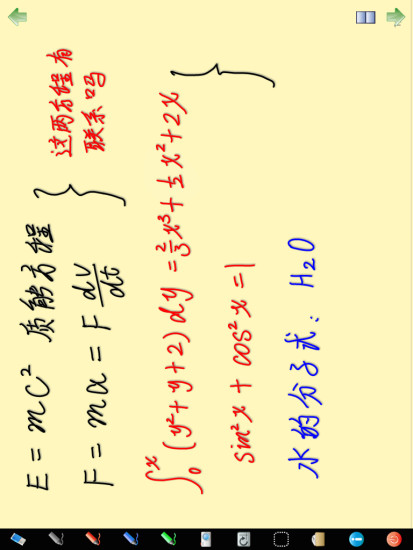 E = mc² 质能方程
F = ma = F dv/dt
这两方程有
联系吗
∫₀ˣ (y²+y+2) dy = 2/3 x³ + 1/2 x² + 2x
sin²x + cos²x = 1
水的分子式: H₂O